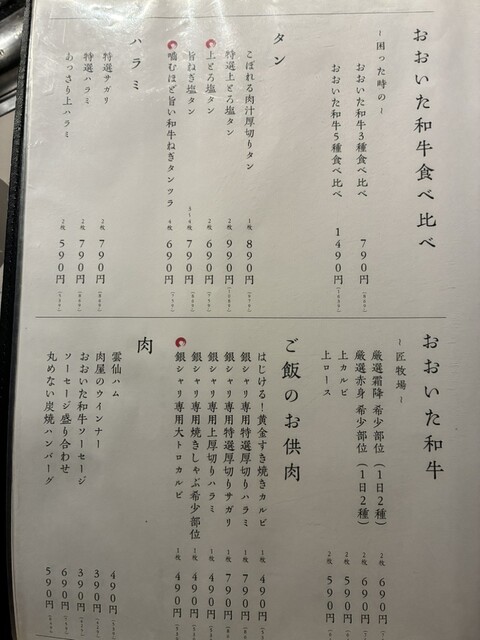 おおいた和牛食べ比べ
~困った時の~
おおいた和牛3種食べ比べ 790円
おおいた和牛5種食べ比べ 1490円
タン
こぼれる肉汁厚切りタン 1枚 890円
特選上とろ塩タン 2枚 990円
上とろ塩タン 2枚 690円
旨ねぎ塩タン 3~4枚 790円
噛むほど旨い和牛ねぎタンツラ 4枚 690円
ハラミ
特選サガリ 2枚 790円
特選ハラミ 2枚 790円
あっさり上ハラミ 2枚 590円
おおいた和牛
~匠牧場~
厳選霜降 希少部位(1日2種) 2枚 690円
厳選赤身 希少部位(1日2種) 2枚 690円
上カルビ 2枚 590円
上ロース 2枚 590円
ご飯のお供肉
はじける!黄金すき焼きカルビ 1枚 490円
銀シャリ専用特選厚切りハラミ 1枚 790円
銀シャリ専用特選厚切りサガリ 1枚 790円
銀シャリ専用上厚切りハラミ 1枚 490円
銀シャリ専用焼きしゃぶ希少部位 1枚 490円
銀シャリ専用大トロカルビ 1枚 490円
肉
雲仙ハム 490円
肉屋のウインナー 390円
おおいた和牛ソーセージ 390円
ソーセージ盛り合わせ 690円
丸めない炭焼ハンバーグ 590円